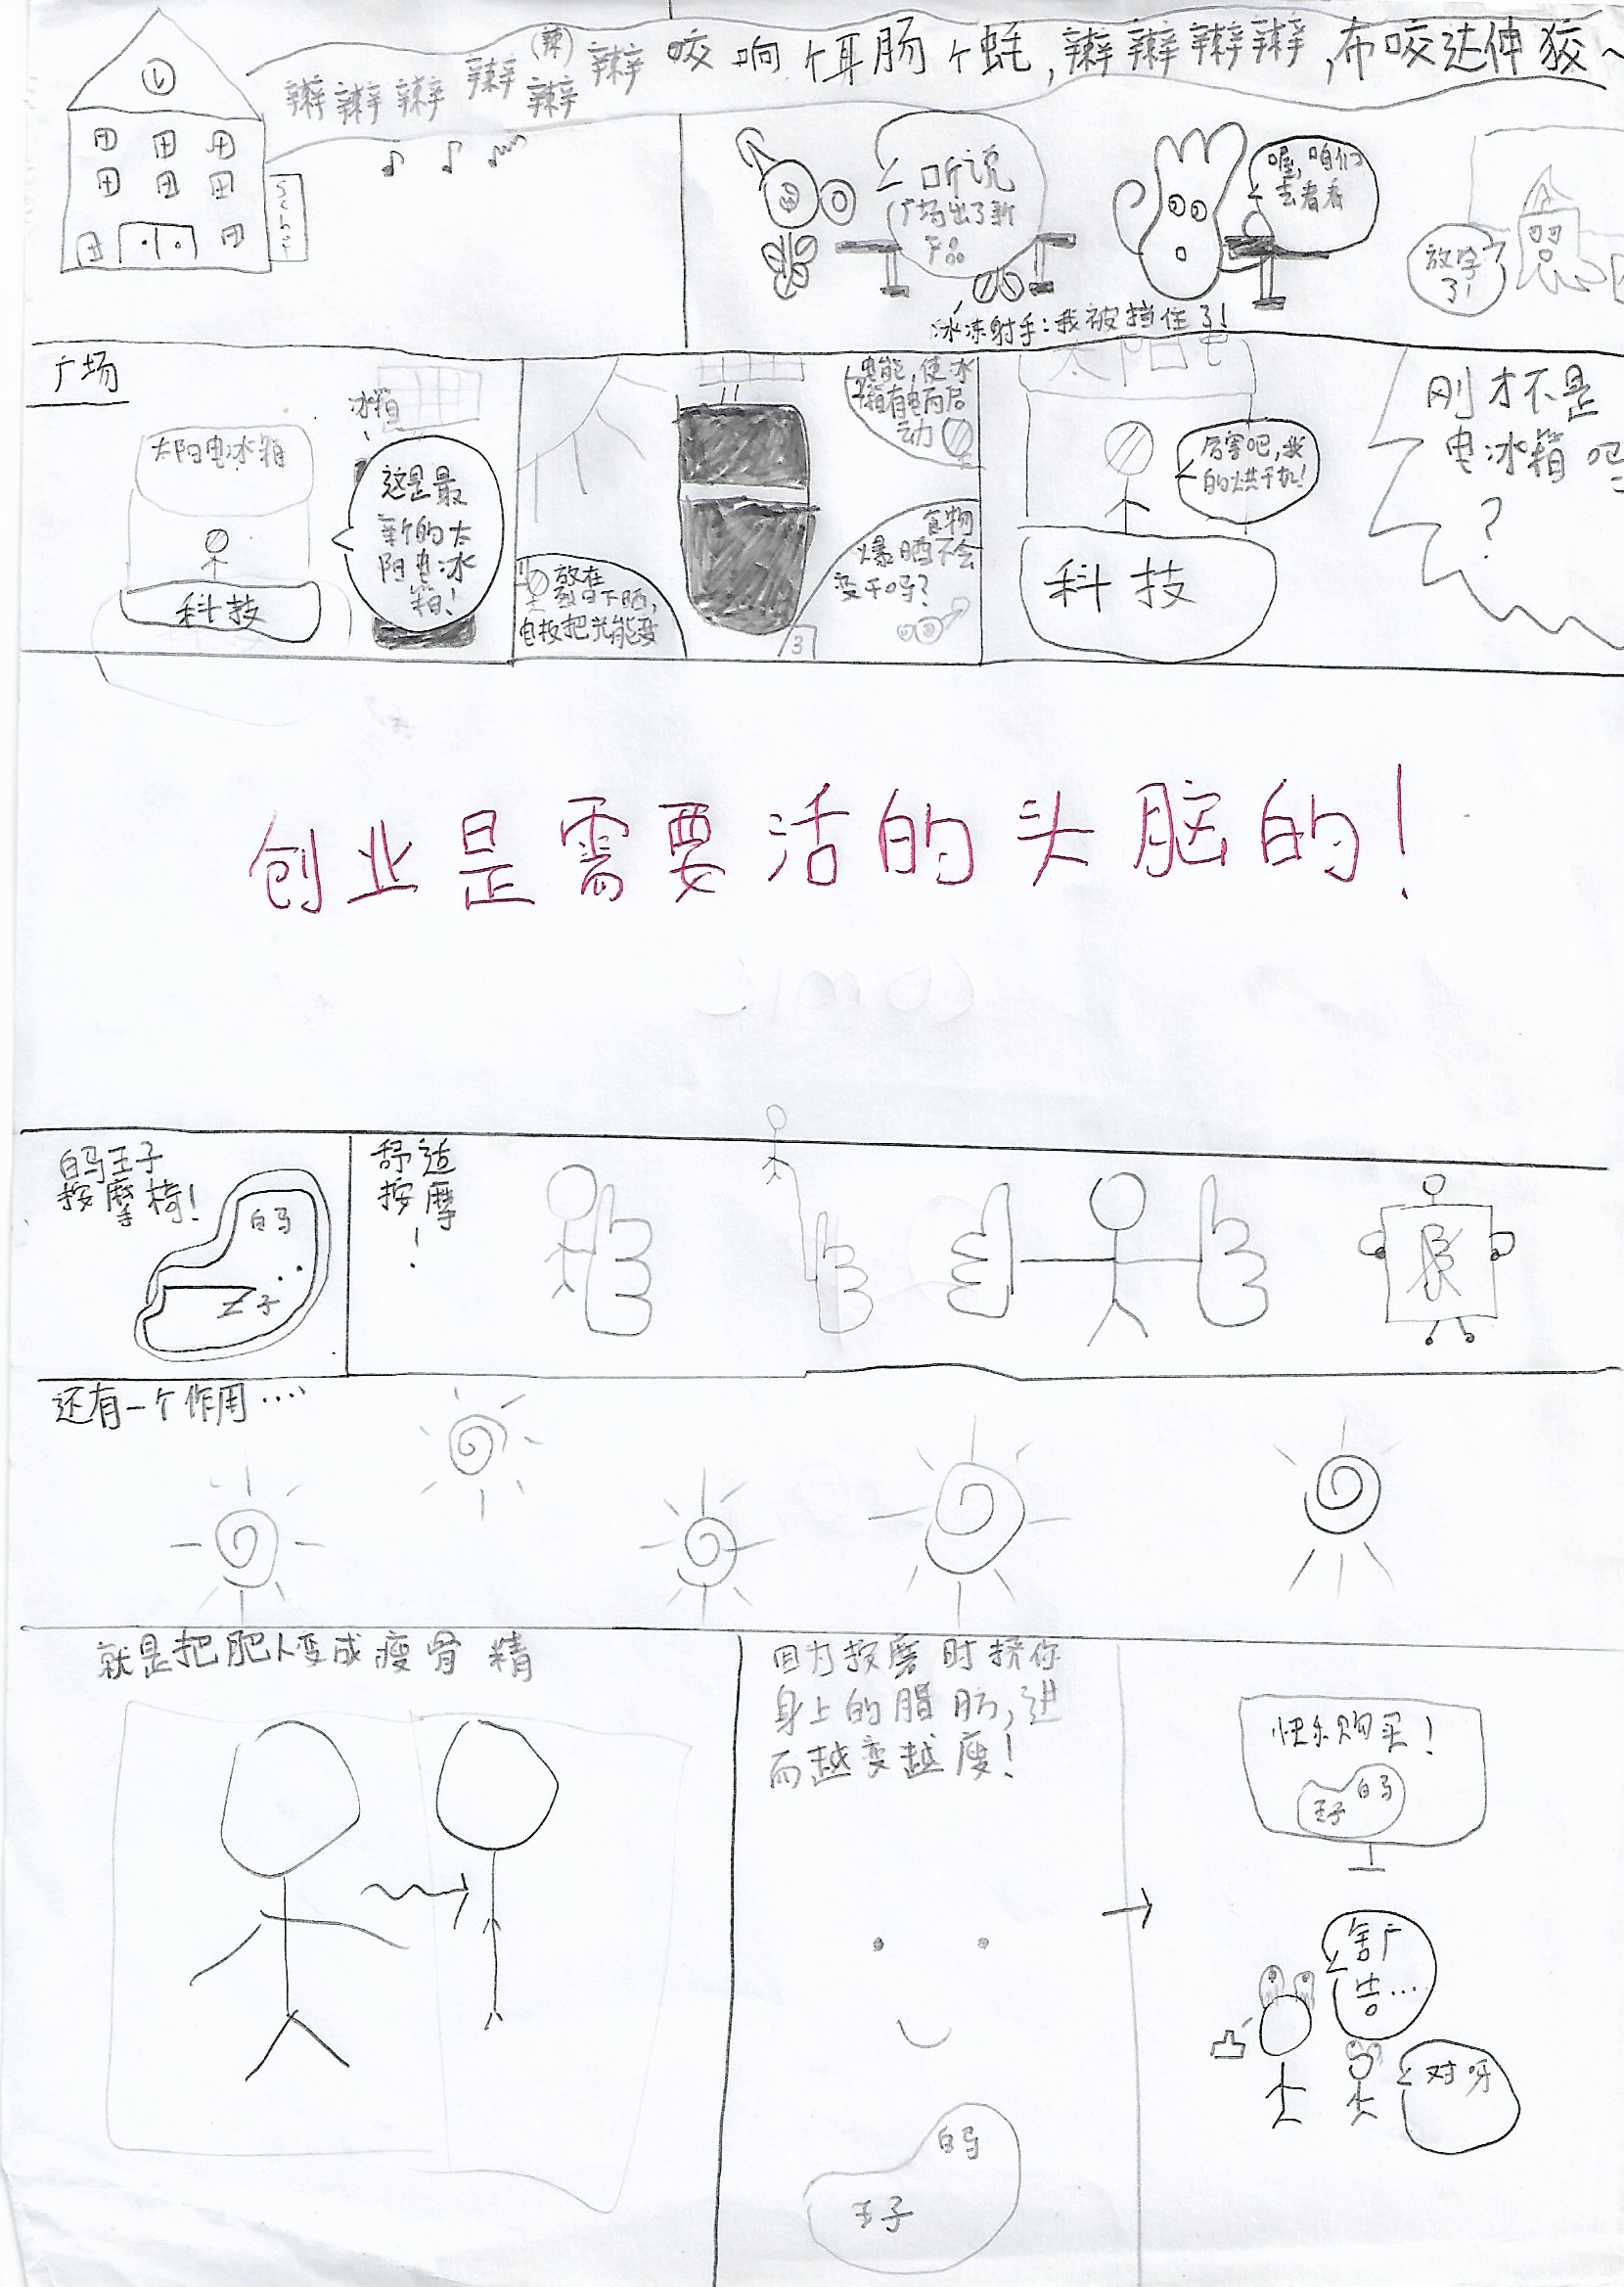 (辣)
辫辫辫辫辫辫咬响个耳肠个蚝,辫辫辫辫,布咬达伸狡~
听说
广场出了新
产品
喔,咱们
去看看
放学
了!
冰冻射手:我被挡住了!
广场
太阳电冰箱
科技
冰箱
这是最
新的太
阳电冰
箱!
放在
烈日下晒,
电板把光能变
电能,使冰
箱有电而启
动
食物
爆晒不会
变干吗?
3
太阳电
厉害吧,我
的烘干机!
科技
刚才不是
电冰箱吧
?
创业是需要活的头脑的!
白马王子
按摩椅!
白马
王子
舒适
按摩
!
还有一个作用····
就是把肥人变成瘦骨精
因为按摩时挤你
身上的脂肪,进
而越变越瘦!
白马
王子
快乐购买!
白马
王子
害广
告...
对呀